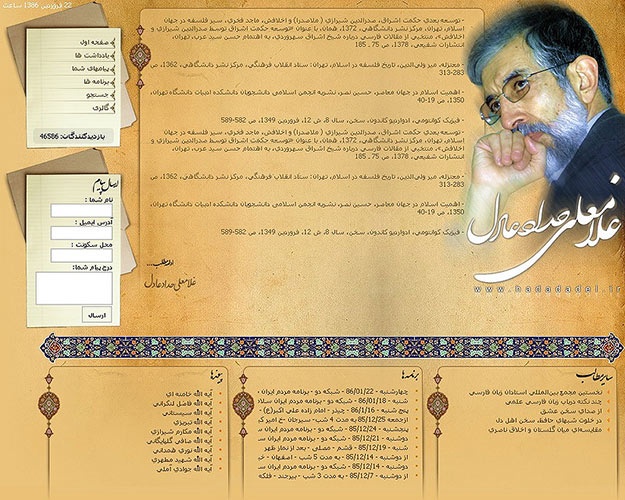 22 فروردین 1386 ساعت
صفحه اول
یادداشت ها
پیامهای شما
برنامه ها
جستجو
گالری
بازدیدکنندگان: 46586
- توسعه بعدی حکمت اشراق، صدرالدین شیرازی ( ملاصدرا) و اخلافش، ماجد فخری، سیر فلسفه در جهان
اسلام، تهران، مرکز نشر دانشگاهی، 1372، همان، با عنوان «توسعه حکمت اشراق، صدرالدین شیرازی و
اخلافش»، منتخبی از مقالات فارسی درباره شیخ اشراق سهروردی، به اهتمام حسن سید عرب، تهران،
انتشارات شفیعی، 1378، ص 75 ـ 185
- معتزله، میر ولی‌الدین، تاریخ فلسفه در اسلام، تهران: ستاد انقلاب فرهنگی، مرکز نشر دانشگاهی، 1362، ص
313-283
- اهمیت اسلام در جهان معاصر، حسین نصر، نشریه انجمن اسلامی دانشجویان دانشکده ادبیات دانشگاه تهران،
1350، ص 40-19
- فیزیک کوانتومی، ادوارد یو کاندون، سخن، سال 8، ش 12، فروردین 1349، ص 582-589
- توسعه بعدی حکمت اشراق، صدرالدین شیرازی ( ملاصدرا) و اخلافش، ماجد فخری، سیر فلسفه در جهان
اسلام، تهران، مرکز نشر دانشگاهی، 1372، همان، با عنوان «توسعه حکمت اشراق، صدرالدین شیرازی و
اخلافش»، منتخبی از مقالات فارسی درباره شیخ اشراق سهروردی، به اهتمام حسن سید عرب، تهران،
انتشارات شفیعی، 1378، ص 75 ـ 185
- معتزله، میر ولی‌الدین، تاریخ فلسفه در اسلام، تهران: ستاد انقلاب فرهنگی، مرکز نشر دانشگاهی، 1362، ص
313-283
- اهمیت اسلام در جهان معاصر، حسین نصر، نشریه انجمن اسلامی دانشجویان دانشکده ادبیات دانشگاه تهران،
1350، ص 40-19
- فیزیک کوانتومی، ادوارد یو کاندون، سخن، سال 8، ش 12، فروردین 1349، ص 582-589
ادامه مطلب...
غلامعلی حدادعادل
غلامعلی حدادعادل
www.hadadadel.ir
ارسال پیام
نام شما :
آدرس ایمیل :
محل سکونت :
درج پیام شما:
ارسال
سایر مطالب
نخستین مجمع بین‌المللی استادان زبان فارسی
چند نکته درباب زبان فارسی علمی
از صدای سخن عشق
در خلوت شبهای حافظ، سخن اهل دل
مقایسه‌ای میان گلستان و اخلاق ناصری
برنامه‌ها
چهارشنبه - 86/01/22 - شبکه دو - برنامه مردم ایران س
شنبه - 86/01/18 - شبکه دو - برنامه مردم ایران سلا
پنج شنبه - 86/1/16 - چیذر - امام زاده علی اکبر(ع) -
ازجمعه 85/12/25 به مدت 4 شب- سیرجان - خ امیر کب
پنجشنبه - 85/12/24 - شبکه دو - برنامه مردم ایران س
دوشنبه - 85/12/21 - شبکه دو - برنامه مردم ایران س
شنبه - 85/12/19 - قشم - مصلی - بعد از نماز ظهر
از دوشنبه - 85/12/14 - به مدت 5 شب - اصفهان - خی
دوشنبه - 85/12/14 - شبکه دو - برنامه مردم ایران س
از دوشنبه - 85/12/7 - به مدت 3 شب - بیرجند - فلکه
پیوندها
آیه الله خامنه ای
آیه الله فاضل لنکرانی
آیه الله سیستانی
آیه الله تبریزی
آیه الله مکارم شیرازی
آیه الله صافی گلپایگانی
آیه الله نوری همدانی
آیه الله شهید مطهری
آیه الله جوادی آملی